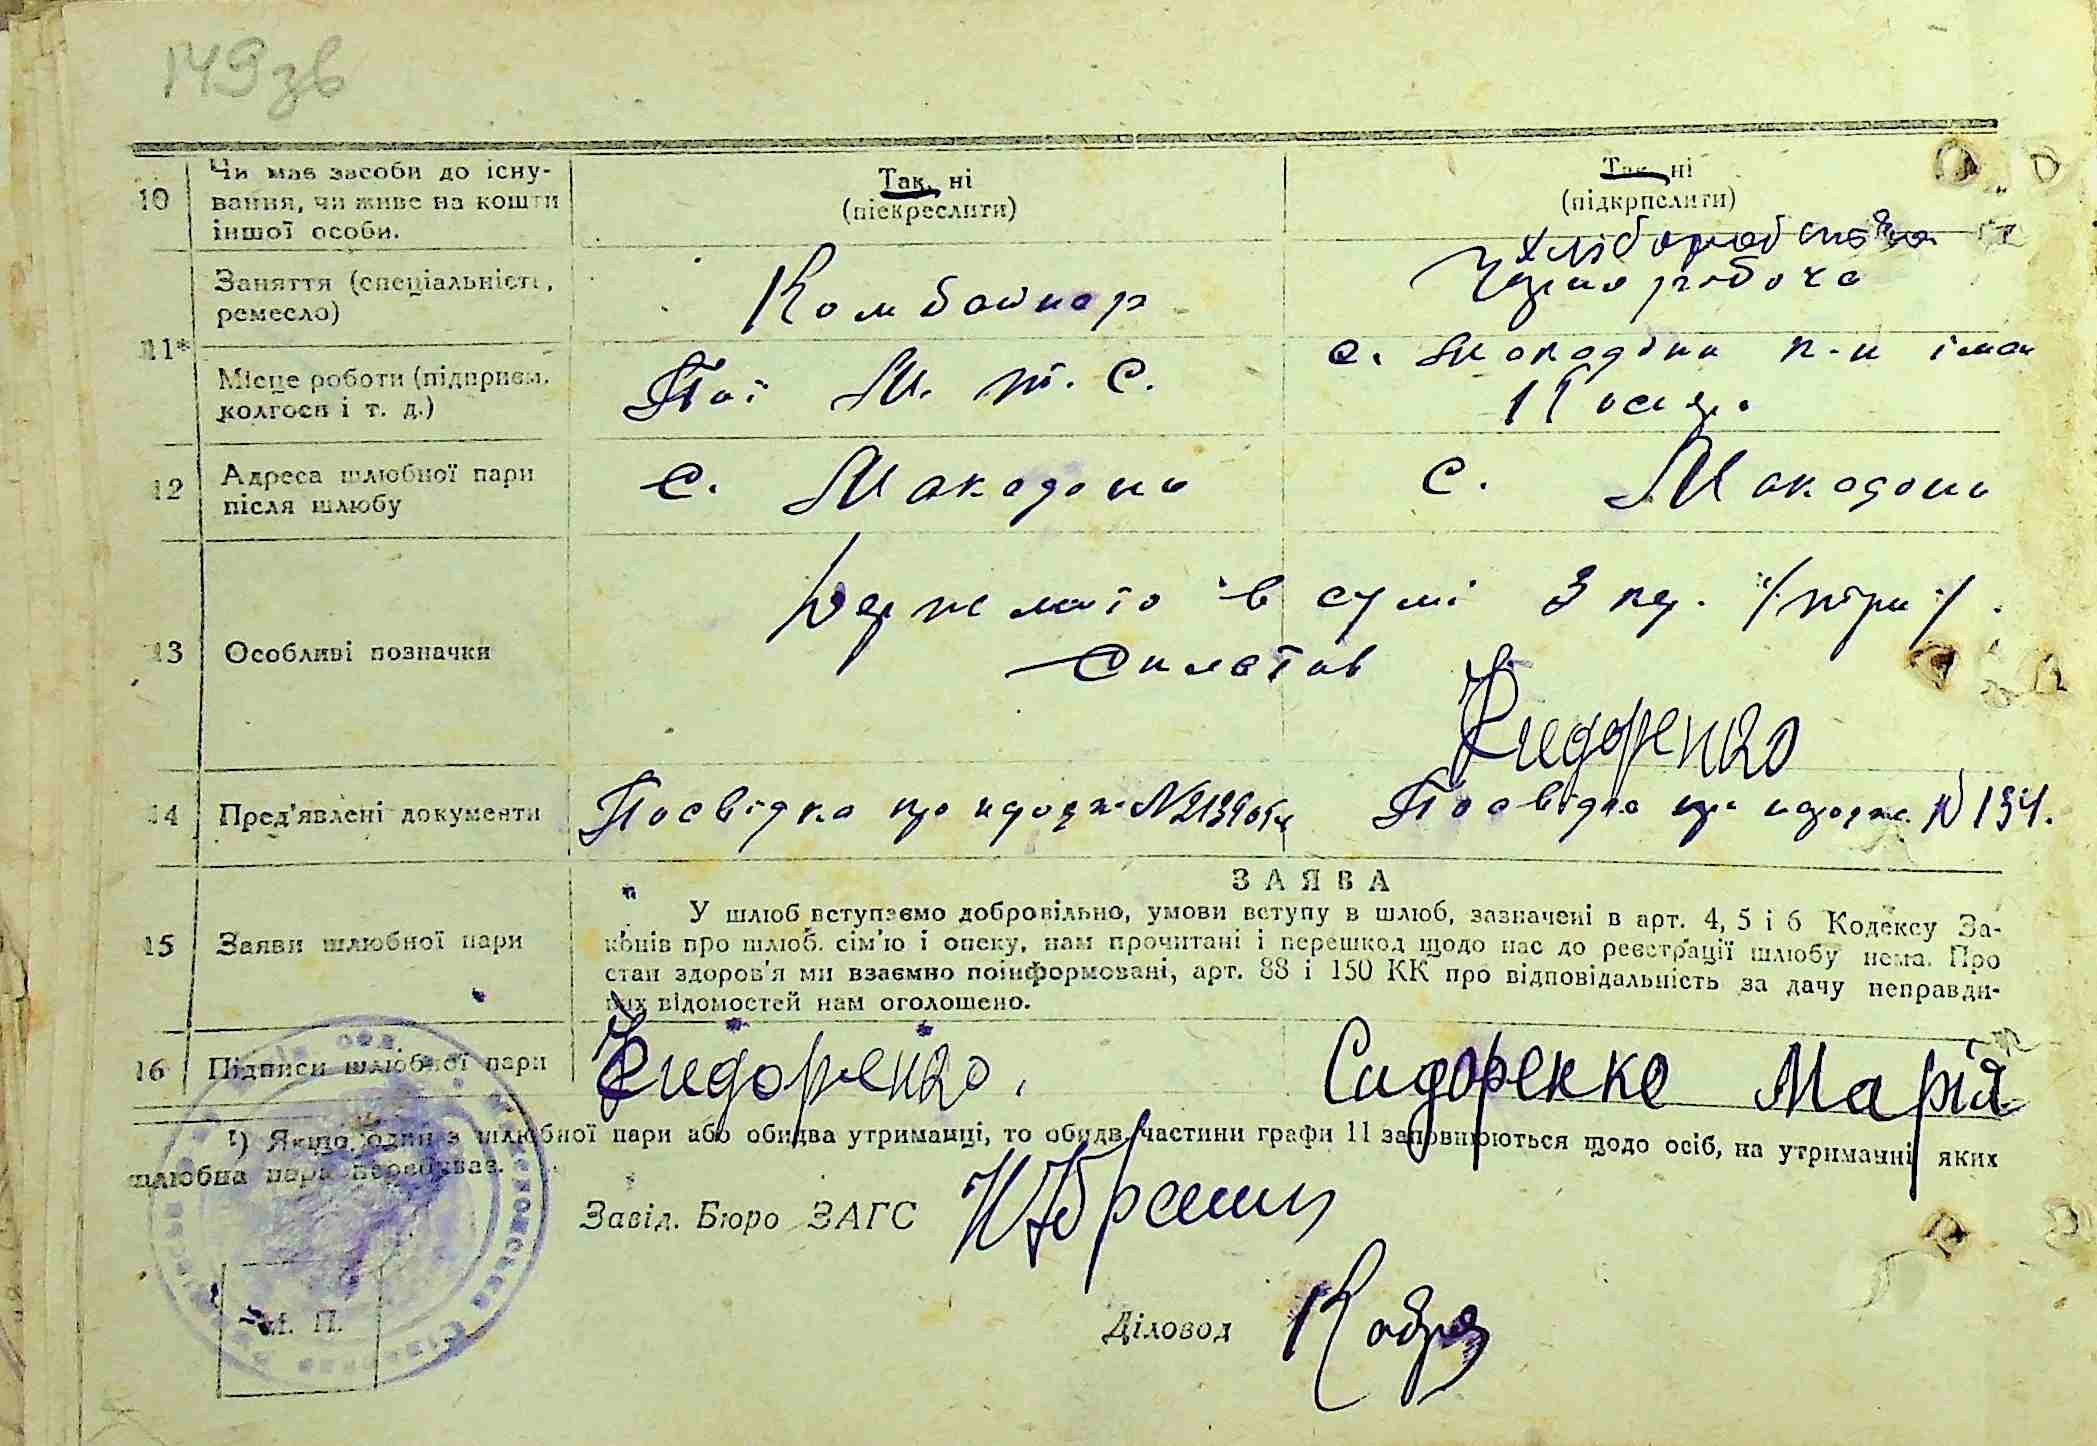 149зв
10 Чи має засоби до існу-
вання, чи живе на кошти
іншої особи.
Так, ні
(піекреслити)
Так, ні
(підкрпслити)
11* Заняття (спеціальність,
ремесло)
Комбайнер
робоча
Місце роботи (підприєм.
колгосп і т. д.)
М. т. С.
с.
12 Адреса шлюбної пари
після шлюбу
с. Македони
с. Македони
13 Особливі позначки
Держмито в сумі 3 кр. /три/.
Сплатив
Сидоренко
14 Пред'явлені документи
Посвідка про народж №
Посвідка про народж. № 134.
15 Заяви шлюбної пари
ЗАЯВА
У шлюб вступаємо добровільно, умови вступу в шлюб, зазначені в арт. 4, 5 і 6 Кодексу За-
конів про шлюб, сім'ю і опеку, нам прочитані і перешкод щодо нас до реєстрації шлюбу нема. Про
стан здоров'я ми взаємно поінформовані, арт. 88 і 150 КК про відповідальність за дачу неправди-
вих відомостей нам оголошено.
16 Підписи шлюбної пари
Сидоренко.
Сидоренко Марія
¹) Якщо один з шлюбної пари або обидва утриманці, то обидві частини графи 11 заповнюються щодо осіб, на утриманні яких
шлюбна пара перебуває.
Завід. Бюро ЗАГС
М. П.
Діловод